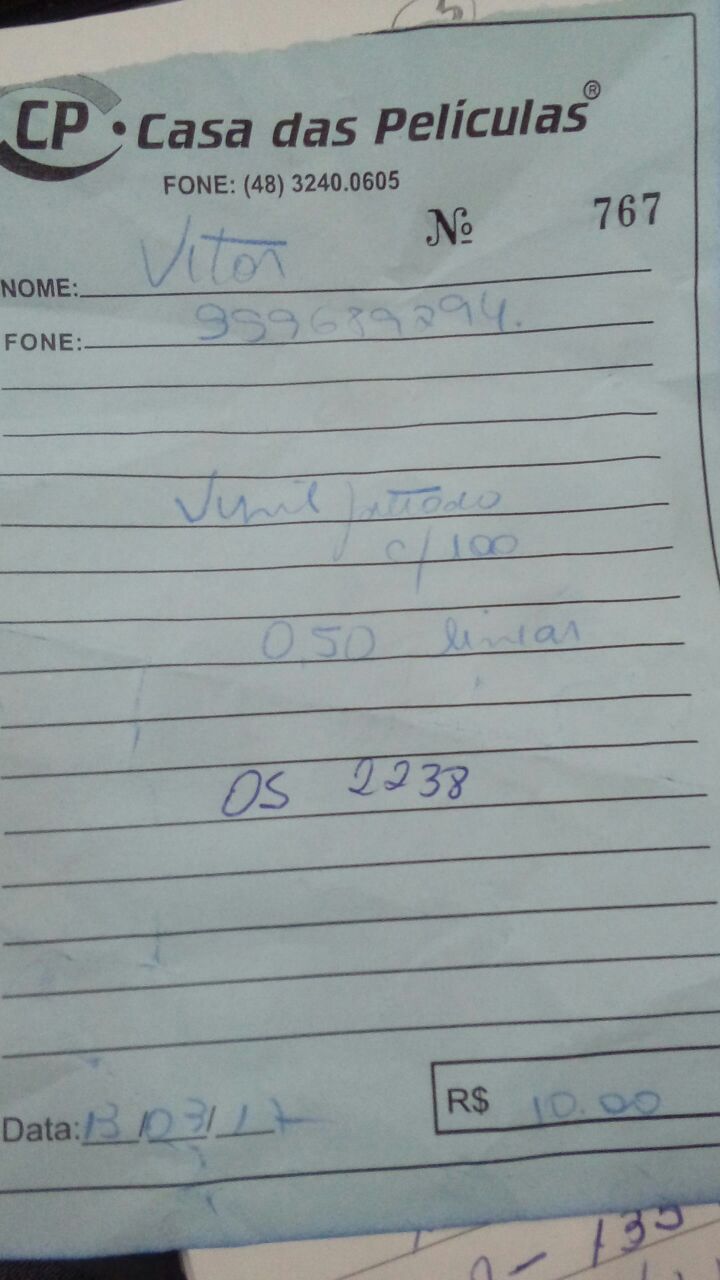 CP • Casa das Películas®
FONE: (48) 3240.0605
Nº 767
NOME: Vitor
FONE: 999689294.
Vinil jateado
c/100
0,50 linear
OS 2238
Data: 13/03/17
R$ 10.00
135